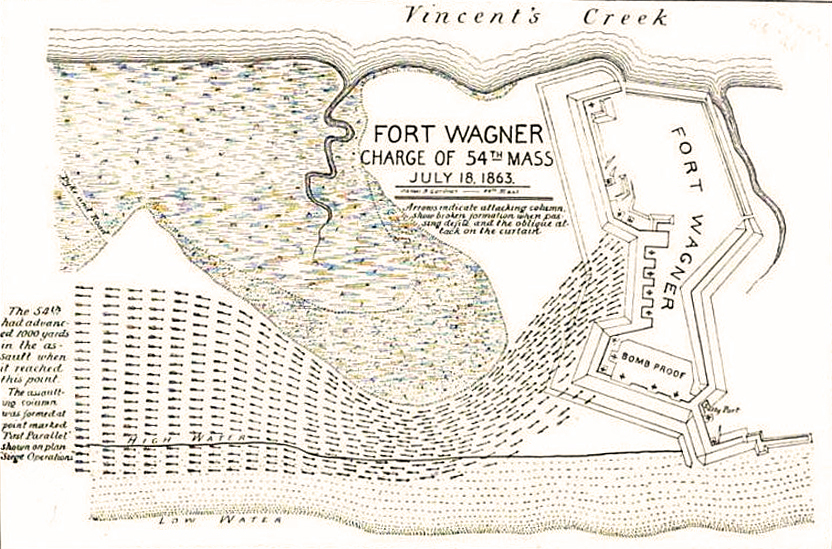 Vincent's Creek
FORT WAGNER
CHARGE OF 54TH MASS
JULY 18, 1863.
Arrows indicate attacking column,
show broken formation when pas-
sing defile and the oblique at-
tack on the curtain
FORT WAGNER
BOMB PROOF
Sally Port
The 54th
had advanc-
ed 1000 yards
in the as-
sault when
it reached
this point.
The assault-
ing column
was formed at
point marked
"First Parallel"
shown on plan
Siege Operations
HIGH WATER
LOW WATER